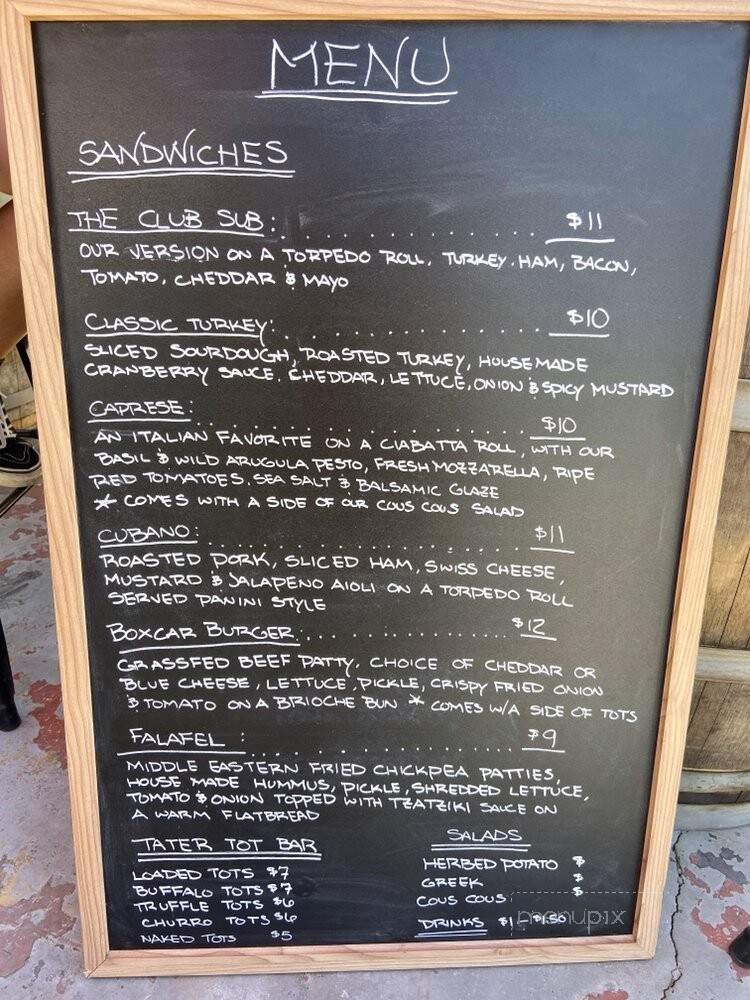 MENU
SANDWICHES
THE CLUB SUB: $11
OUR VERSION ON A TORPEDO ROLL, TURKEY, HAM, BACON,
TOMATO, CHEDDAR & MAYO
CLASSIC TURKEY: $10
SLICED SOURDOUGH, ROASTED TURKEY, HOUSEMADE
CRANBERRY SAUCE, CHEDDAR, LETTUCE, ONION & SPICY MUSTARD
CAPRESE: $10
AN ITALIAN FAVORITE ON A CIABATTA ROLL, WITH OUR
BASIL & WILD ARUGULA PESTO, FRESH MOZZARELLA, RIPE
RED TOMATOES, SEA SALT & BALSAMIC GLAZE
* COMES WITH A SIDE OF OUR COUS COUS SALAD
CUBANO: $11
ROASTED PORK, SLICED HAM, SWISS CHEESE,
MUSTARD & JALAPENO AIOLI ON A TORPEDO ROLL
SERVED PANINI STYLE
BOXCAR BURGER $12
GRASSFED BEEF PATTY, CHOICE OF CHEDDAR OR
BLUE CHEESE, LETTUCE, PICKLE, CRISPY FRIED ONION
& TOMATO ON A BRIOCHE BUN * COMES W/A SIDE OF TOTS
FALAFEL: $9
MIDDLE EASTERN FRIED CHICKPEA PATTIES,
HOUSE MADE HUMMUS, PICKLE, SHREDDED LETTUCE,
TOMATO & ONION TOPPED WITH TZATZIKI SAUCE ON
A WARM FLATBREAD
TATER TOT BAR
LOADED TOTS $7
BUFFALO TOTS $7
TRUFFLE TOTS $6
CHURRO TOTS $6
NAKED TOTS $5
SALADS
HERBED POTATO $
GREEK $
COUS COUS $
DRINKS $1 $1.50
menupix